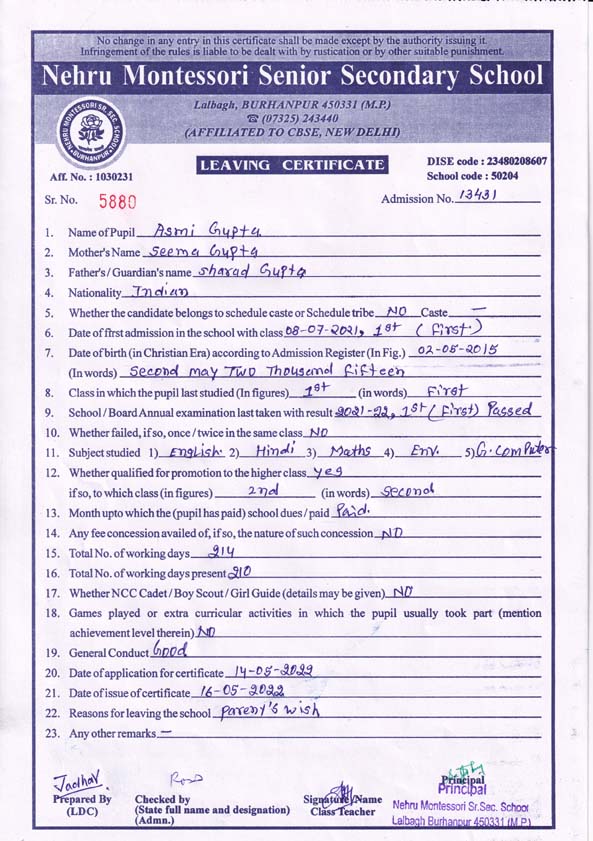 No change in any entry in this certificate shall be made except by the authority issuing it.
Infringement of the rules is liable to be dealt with by rustication or by other suitable punishment.
Nehru Montessori Senior Secondary School
Lalbagh, BURHANPUR 450331 (M.P.)
☎ (07325) 243440
(AFFILIATED TO CBSE, NEW DELHI)
NEHRU MONTESSORI SR. SEC. SCHOOL
BURHANPUR
LEAVING CERTIFICATE
DISE code : 23480208607
Aff. No. : 1030231
School code : 50204
Sr. No. 5880 Admission No. 13431
1. Name of Pupil Asmi Gupta
2. Mother's Name Seema Gupta
3. Father's / Guardian's name Sharad Gupta
4. Nationality Indian
5. Whether the candidate belongs to schedule caste or Schedule tribe NO Caste —
6. Date of frst admission in the school with class 08-07-2021, 1st (First.)
7. Date of birth (in Christian Era) according to Admission Register (In Fig.) 02-05-2015
(In words) Second may Two Thousand fifteen
8. Class in which the pupil last studied (In figures) 1st (in words) First
9. School / Board Annual examination last taken with result 2021-22, 1st (First) Passed
10. Whether failed, if so, once / twice in the same class NO
11. Subject studied 1) English. 2) Hindi 3) Maths 4) Env. 5) G. Computer
12. Whether qualified for promotion to the higher class yes
if so, to which class (in figures) 2nd (in words) Second
13. Month upto which the (pupil has paid) school dues / paid Paid.
14. Any fee concession availed of, if so, the nature of such concession NO
15. Total No. of working days 214
16. Total No. of working days present 210
17. Whether NCC Cadet / Boy Scout / Girl Guide (details may be given) NO
18. Games played or extra curricular activities in which the pupil usually took part (mention
achievement level therein) NO
19. General Conduct Good
20. Date of application for certificate 14-05-2022
21. Date of issue of certificate 16-05-2022
22. Reasons for leaving the school pareny's wish
23. Any other remarks —
Jadhav
Prepared By
(LDC)
Checked by
(State full name and designation)
(Admn.)
Signature/Name
Class Teacher
Principal
Principal
Nehru Montessori Sr.Sec. School
Lalbagh Burhanpur 450331 (M.P.)